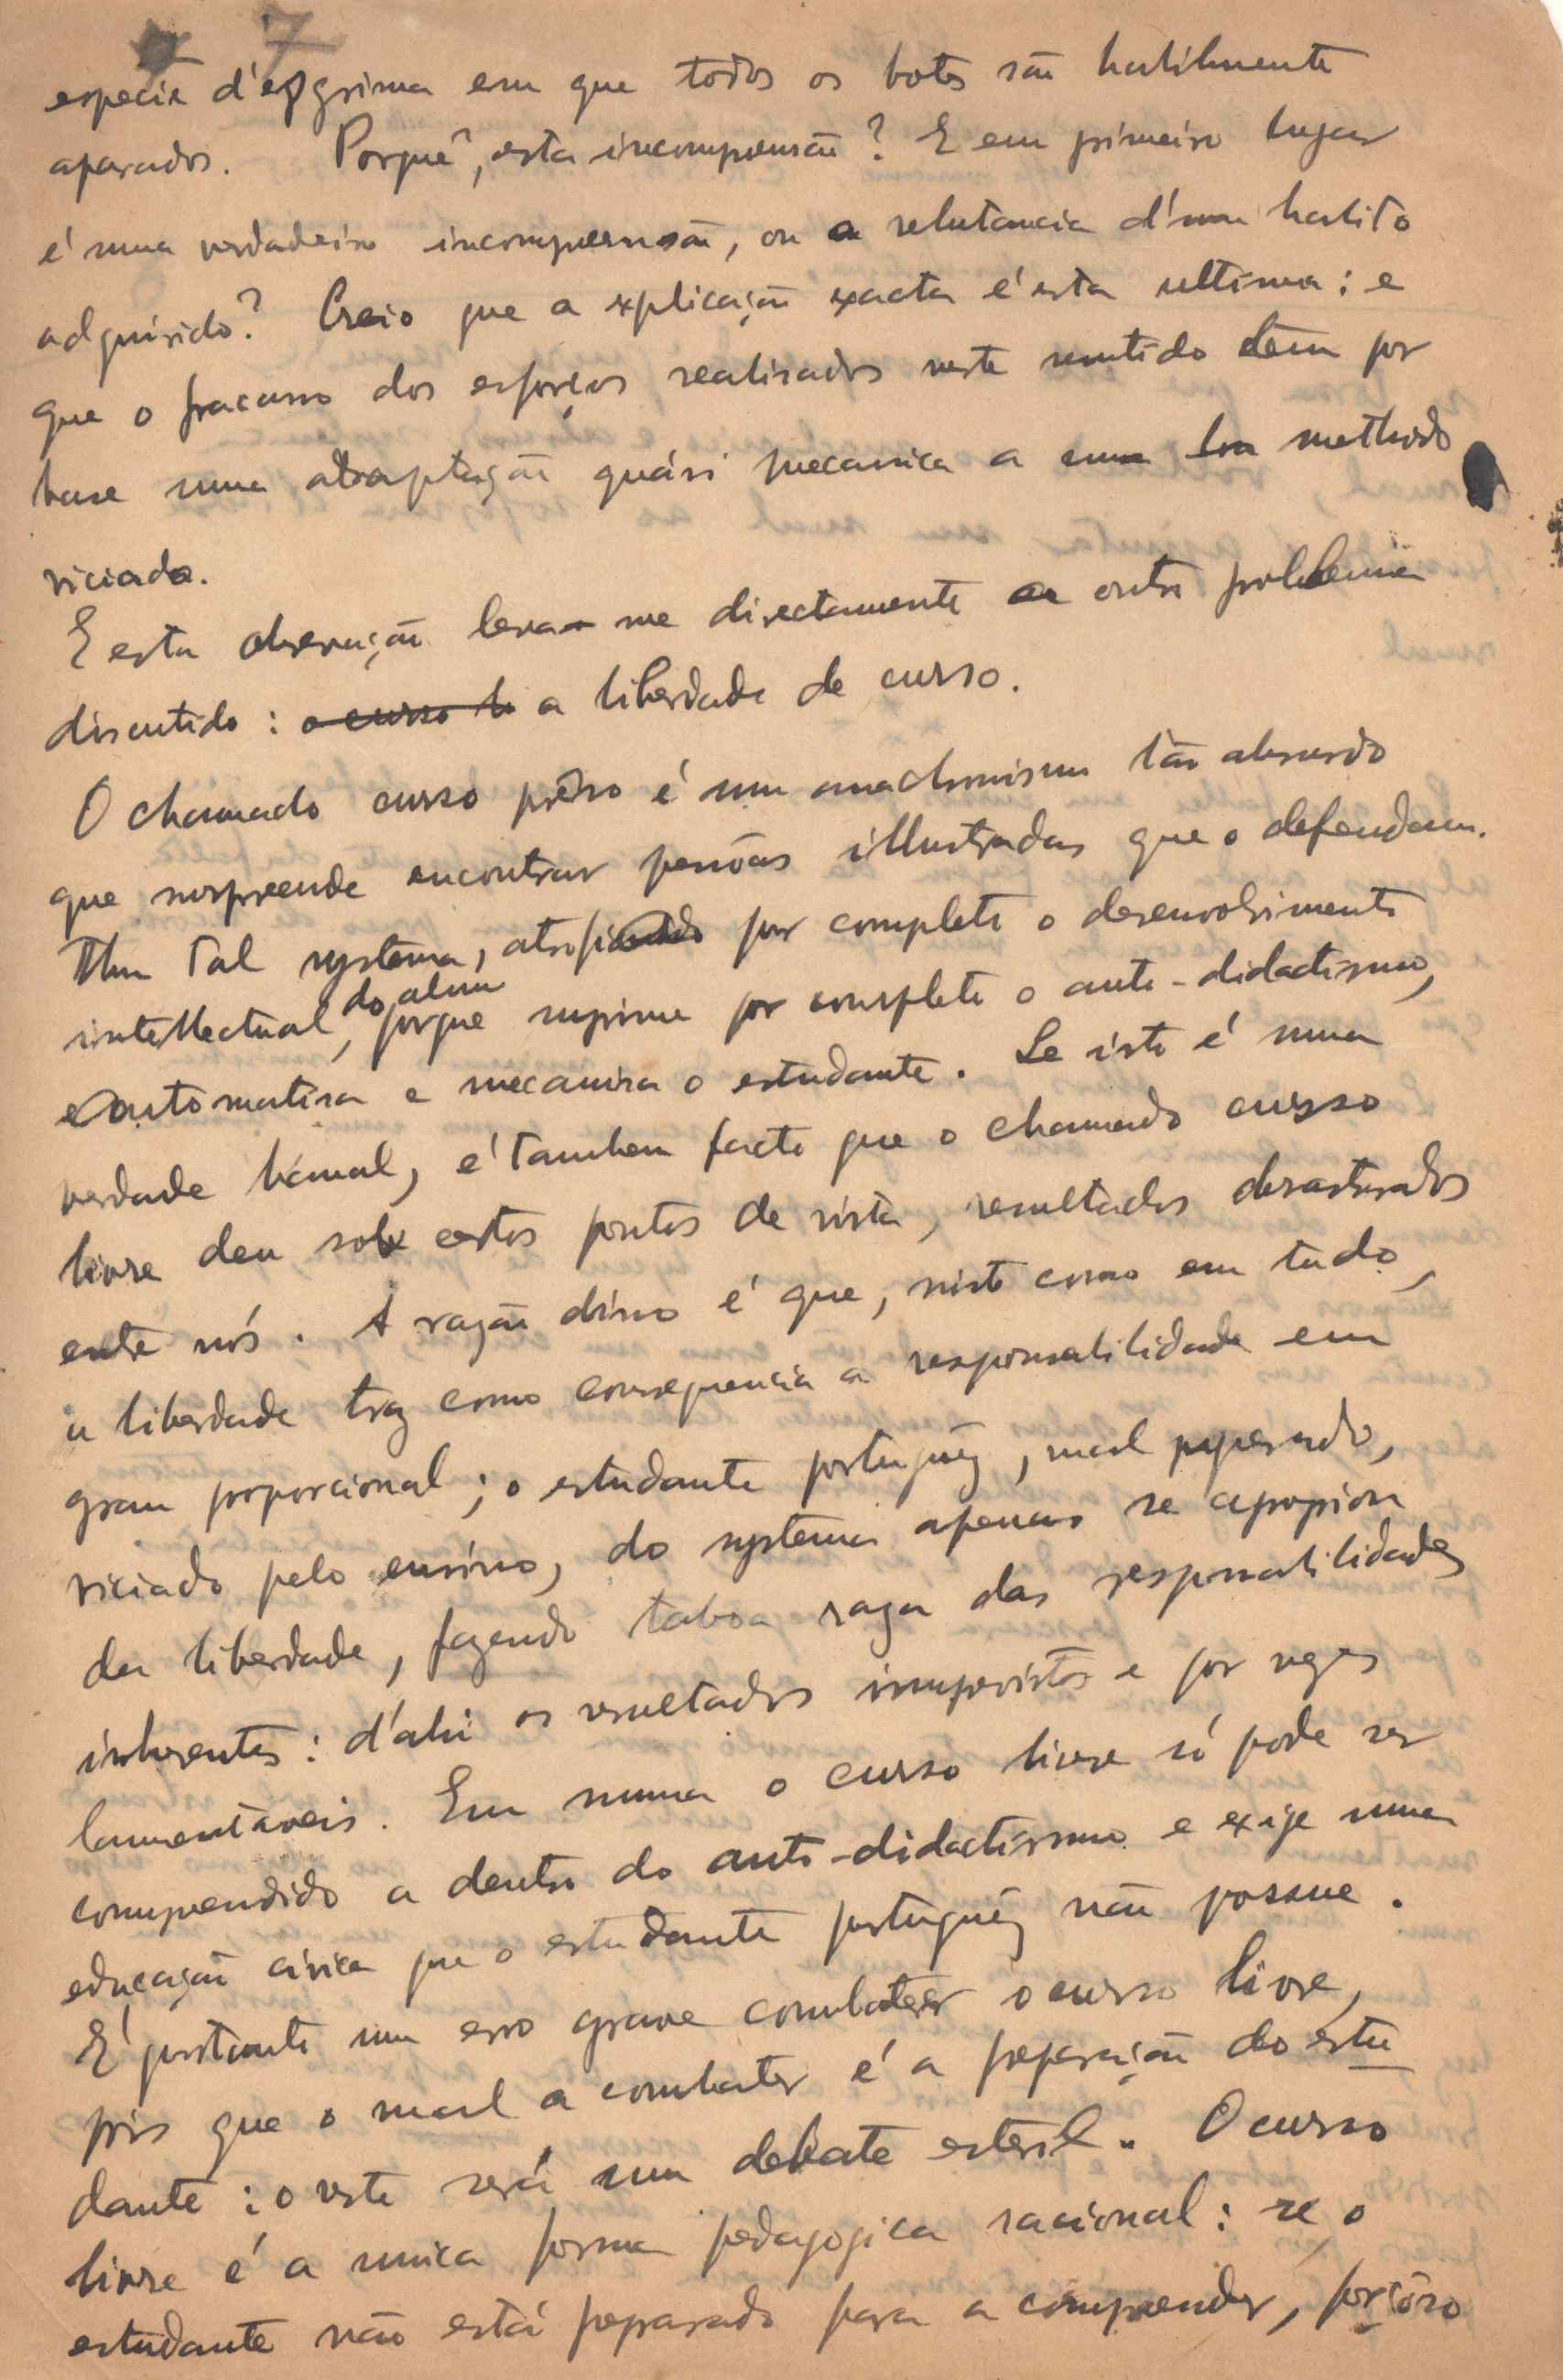 7
especie d'esgrima em que todos os botes são habilmente
aparados. Porquê, esta incompreensão? E em primeiro lugar
é uma verdadeira incompreensão, ou a relutancia d'um habito
adquirido? Creio que a explicação exacta é esta ultima: e
que o fracasso dos esforços realisados neste sentido têm por
base uma adaptação quási mecanica a um methodo
viciado.
E esta observação leva-me directamente a outro problema
discutido: o curso li a liberdade de curso.
O chamado curso prêso é um anachronismo tão absurdo
que surpreende encontrar pessôas illustradas que o defendam.
Um tal systema, atrofia por completo o desenvolvimento
intellectual do alum, porque suprime por completo o auto-didactismo,
e automatisa e mecanisa o estudante. Se isto é uma
verdade bánal, é tambem facto que o chamado curso
livre deu sob estes pontos de vista, resultados desastrados
entre nós. A razão disso é que, nisto como em tudo,
a liberdade traz como consequencia a responsabilidade em
grau proporcional; o estudante português, mal preparado,
viciado pelo ensino, do systema apenas se apropiou
da liberdade, fazendo taboa raza das responsabilidades
inherentes: d'ahi os resultados imprevistos e por vezes
lamentaveis. Em suma o curso livre só pode ser
comprendido a dentro do auto-didactismo e exige uma
educação civica que o estudante português não possue.
E' portanto um erro grave combater o curso livre,
pois que o mal a combater é a preparação do estu
dante: o resto será um debate esteril. O curso
livre é a unica forma pedagogica racional: se o
estudante não está preparado para a comprender, forçôso